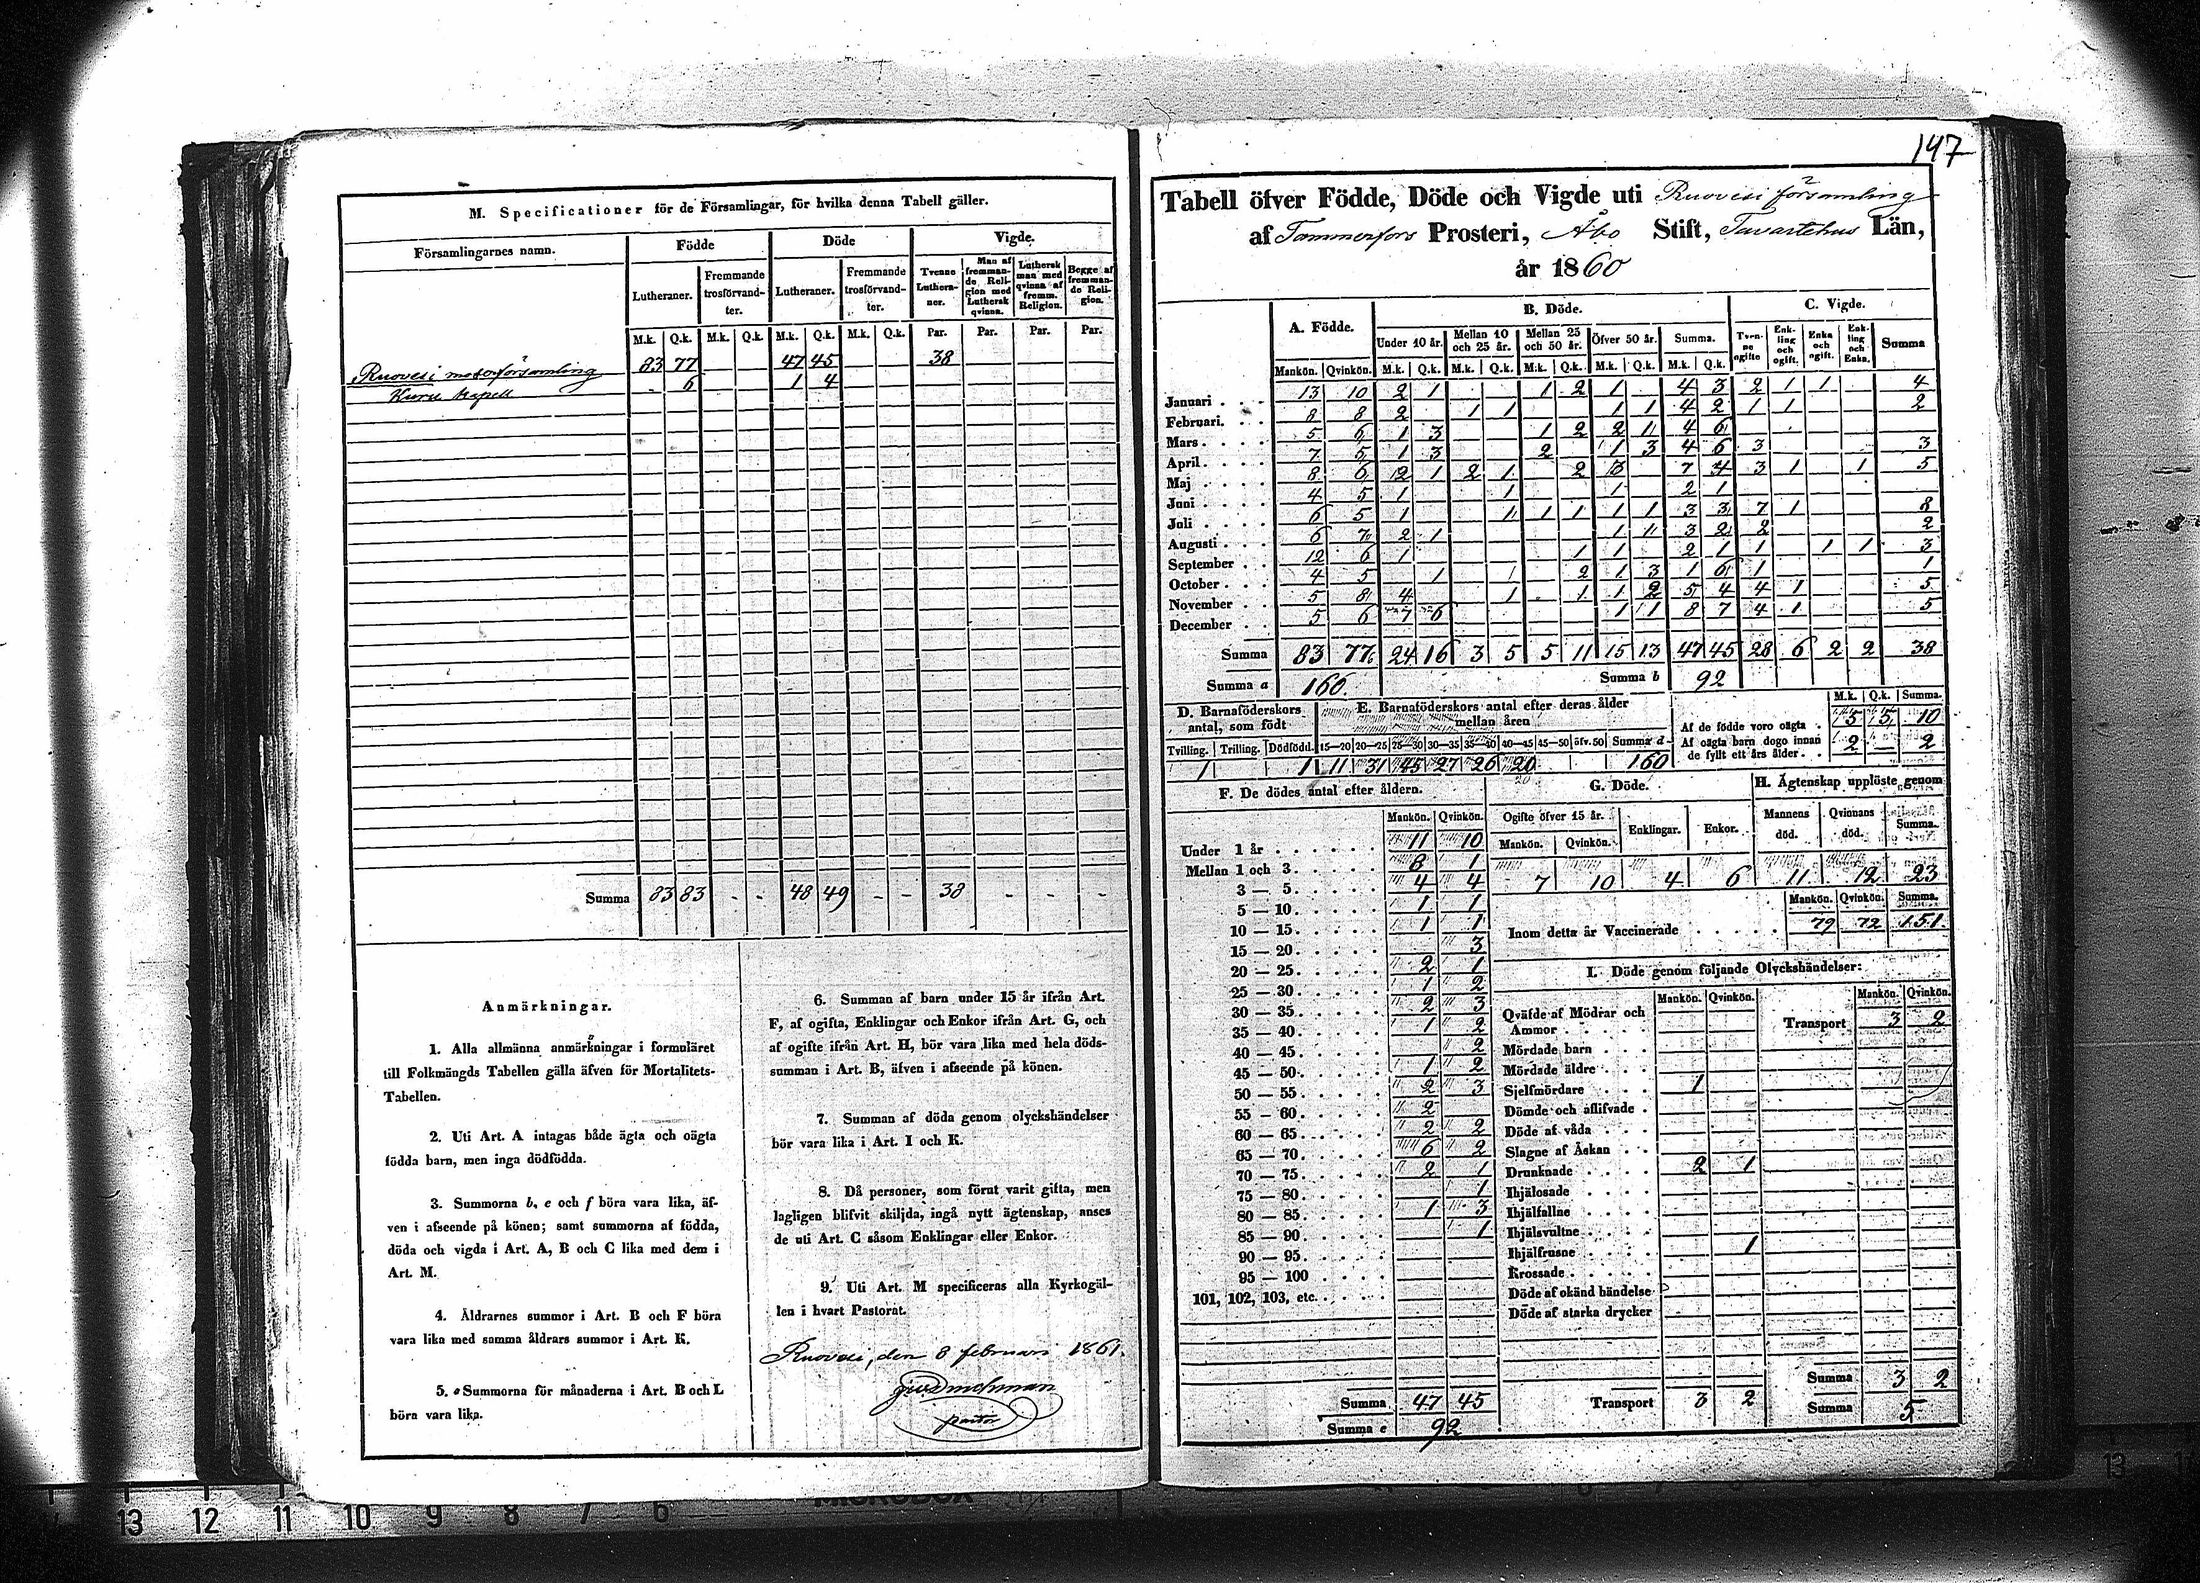 M. Specificationer för de Församlingar, för hvilka denna Tabell gäller.
Församlingarnes namn. Födde Döde Vigde.
Lutheraner. Fremmande trosförvandter. Lutheraner. Fremmande trosförvandter. Tvenne Lutheraner. Man af fremmande Religion med Luthersk qvinna. Luthersk man med qvinna af fremm. Religion. Begge af fremmande Religion.
M.k. Q.k. M.k. Q.k. M.k. Q.k. M.k. Q.k. Par. Par. Par. Par.
Ruovesi moderförsamling 83 77 47 45 38
Kuru kapell - 6 1 4
Summa 83 83 - - 48 49 - - 38 - - -
Anmärkningar.
1. Alla allmänna anmärkningar i formuläret
till Folkmängds Tabellen gälla äfven för Mortalitets-
Tabellen.
2. Uti Art. A intagas både ägta och oägta
födda barn, men inga dödfödda.
3. Summorna b, e och f böra vara lika, äf-
ven i afseende på könen; samt summorna af födda,
döda och vigda i Art. A, B och C lika med dem i
Art. M.
4. Åldrarnes summor i Art. B och F böra
vara lika med samma åldrars summor i Art. K.
5. Summorna för månaderna i Art. B och L
böra vara lika.
6. Summan af barn under 15 år ifrån Art.
F, af ogifta, Enklingar och Enkor ifrån Art. G, och
af ogifte ifrån Art. H, bör vara lika med hela döds-
summan i Art. B, äfven i afseende på könen.
7. Summan af döda genom olyckshändelser
bör vara lika i Art. I och K.
8. Då personer, som förut varit gifta, men
lagligen blifvit skiljda, ingå nytt ägtenskap, anses
de uti Art. C såsom Enklingar eller Enkor.
9. Uti Art. M specificeras alla Kyrkogäl-
len i hvart Pastorat.
Ruovesi, den 8 februari 1861.
pastor
147
Tabell öfver Födde, Döde och Vigde uti Ruovesi församling
af Tammerfors Prosteri, Åbo Stift, Tavastehus Län,
år 1860
A. Födde. B. Döde. C. Vigde.
Under 10 år. Mellan 10 och 25 år. Mellan 25 och 50 år. Öfver 50 år. Summa. Tvenne ogifte Enkling och ogift. Enka och ogift. Enkling och Enka. Summa
Mankön. Qvinkön. M.k. Q.k. M.k. Q.k. M.k. Q.k. M.k. Q.k. M.k. Q.k.
Januari 13 10 2 1 1 2 1 4 3 2 1 1 4
Februari. 8 8 2 1 1 1 1 4 2 1 1 2
Mars 5 6 1 3 1 2 2 1 4 6
April 7 5 1 3 2 1 3 4 6 3 3
Maj 8 6 2 1 2 1 2 3 7 4 3 1 1 5
Juni 4 5 1 1 1 2 1
Juli 6 5 1 1 1 1 1 1 3 3 7 1 8
Augusti 6 7 2 1 1 1 3 2 2 2
September 12 6 1 1 1 2 1 1 1 1 3
October 4 5 1 1 2 1 3 1 6 1 1
November 5 8 4 1 1 1 2 5 4 4 1 5
December 5 6 7 6 1 1 8 7 4 1 5
Summa 83 77 24 16 3 5 5 11 15 13 47 45 28 6 2 2 38
Summa a 160. Summa b 92
D. Barnaföderskors antal, som födt
E. Barnaföderskors antal efter deras ålder mellan åren
Tvilling. Trilling. Dödfödd. 15—20 20—25 25—30 30—35 35—40 40—45 45—50 öfv. 50 Summa d
1 1 11 31 45 27 26 20 160
M.k. Q.k. Summa.
Af de födde voro oägta 5 5 10
Af oägta barn dogo innan de fyllt ett års ålder 2 — 2
F. De dödes antal efter åldern.
Mankön. Qvinkön.
Under 1 år 11 10
Mellan 1 och 3. 8 1
3 — 5. 4 4
5 — 10. 1 1
10 — 15. 1 1
15 — 20. 3
20 — 25. 2 1
25 — 30. 1 2
30 — 35. 2 3
35 — 40. 1 2
40 — 45. 2
45 — 50. 1 2
50 — 55. 2 3
55 — 60. 2
60 — 65. 2 2
65 — 70. 6 2
70 — 75. 2 1
75 — 80. 1
80 — 85. 1 3
85 — 90. 1
90 — 95.
95 — 100
101, 102, 103, etc.
Summa 47 45
Summa e 92
G. Döde.
Ogifte öfver 15 år. Enklingar. Enkor.
Mankön. Qvinkön.
7 10 4 6
H. Ägtenskap upplöste genom
Mannens död. Qvinnans död. Summa.
11 12 23
Mankön. Qvinkön. Summa.
Inom detta år Vaccinerade 79 72 151.
I. Döde genom följande Olyckshändelser:
Mankön. Qvinkön. Mankön. Qvinkön.
Qväfde af Mödrar och Ammor
Transport 3 2
Mördade barn
Mördade äldre
Sjelfmördare 1
Dömde och aflifvade
Döde af våda
Slagne af Åskan
Drunknade 2 1
Ihjälosade
Ihjälfallne
Ihjälsvultne
Ihjälfrusne 1
Krossade
Döde af okänd händelse
Döde af starka drycker
Transport 3 2
Summa 3 2
Summa 5
13 12 11 10 9 8 7 6
13